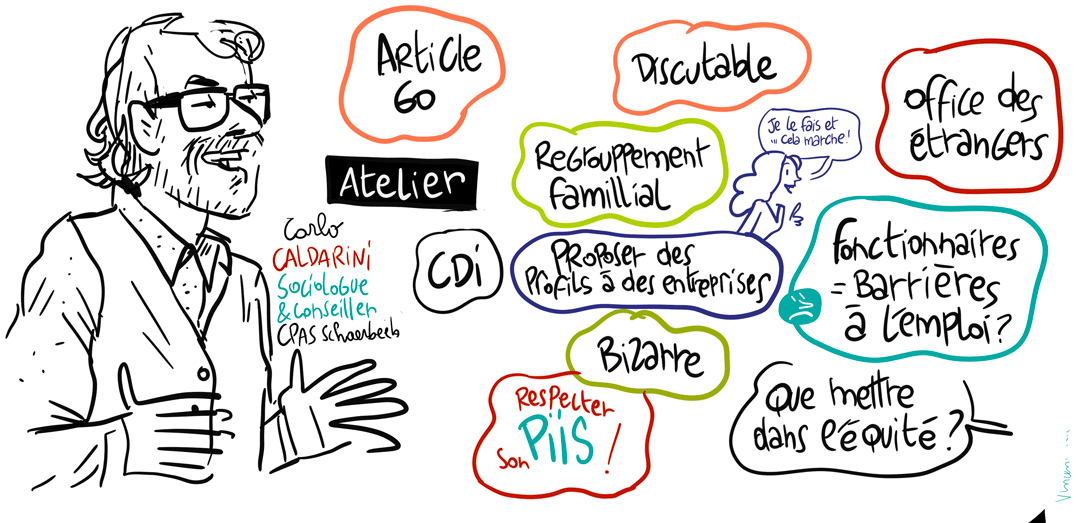 Article
60
Atelier
Carlo
CALDARINI
Sociologue
& conseiller
CPAS Schaerbeek
CDi
Discutable
Regrouppement
famillial
Je le fais et
... cela marche!
Proposer des
Profils à des entreprises
Bizarre
Respecter
son PiiS !
Office des
étrangers
Fonctionnaires
= Barrières
à l'emploi ?
Que mettre
dans l'équité ?